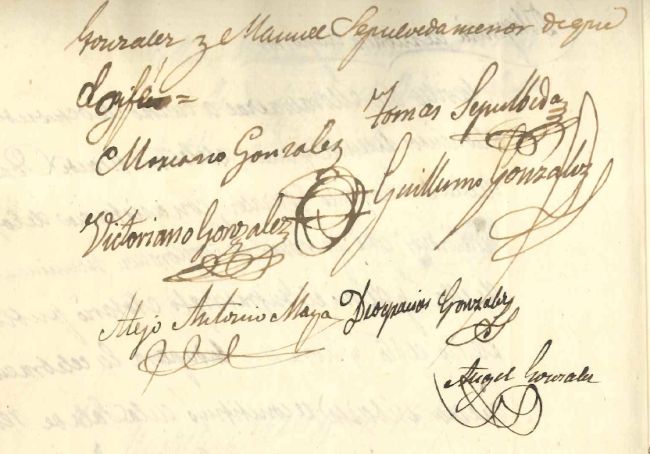 Gonzalez y Manuel Sepulveda menor de que
Certifico=
Tomas Sepulbeda
Mariano Gonzalez
Guillermo Gonzalez
Victoriano Gonzalez
Alejo Antonio Maya Dionysios Gonzalez
Angel Gonzalez